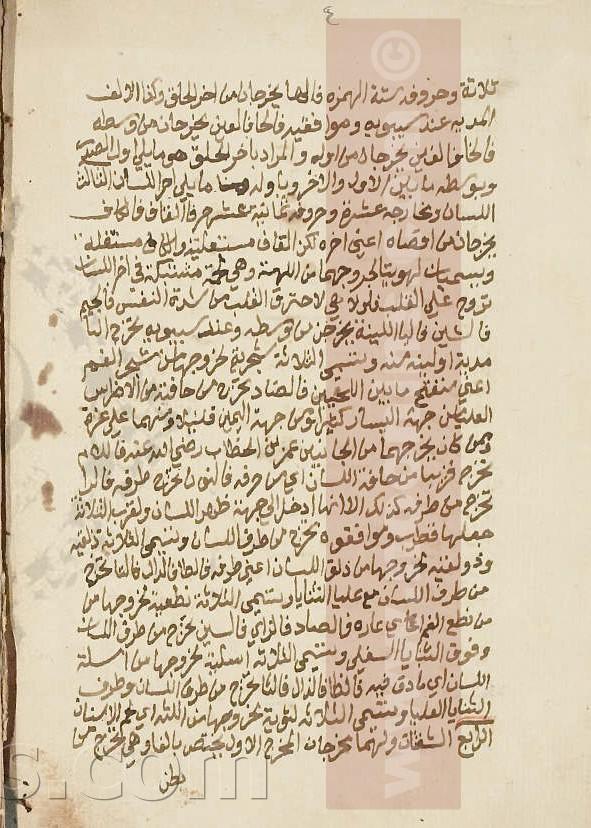 ٤
ثلاثة وحروفه ستة الهمزه فالها يخرجان من اخر الحلق وكذا الالف
المديه عند سيبويه وموافقيه فالحا فالعين يخرجان من وسطه
فالخا فالغين يخرجان من اوله والمراد باخر الحلق هو ما يلي اول الصدر
وبوسطه ما بين الاول والاخر وباوله ما يلي اخر اللسان الثالث
اللسان ومخارجه عشرة وحروفه ثمانية عشر حرفا القاف فالكاف
يخرجان من اقصاه اعني اخره لكن القاف مستعلية والكاف مستفلة
ويسميان لهويتا لخروجهما من اللهمة وهي لحمة مشتبكة في اخر اللسان
تروح علي القلب فلولا هي لاحترق القلب من شدة النفس فالجيم
فالشين فاليا اللينة يخرجن من وسطه وعند سيبويه تخرج اليا
مدية او لينة منه وتسمي الثلاثة شجرية لخروجها من شجر الفم
اعني منفتح ما بين اللحيين فالضاد تخرج من حافته من الاضراس
العليا من جهة اليسار كثيرا ومن جهة اليمين قليلا ومنهما علي عزة
وممن كان يخرجهما من الجانبين عمر بن الخطاب رضي الله عنه فاللام
تخرج قريبا من حافة اللسان اي من حرفه فالنون تخرج طرفه فالرا
تخرج من طرفه كذلك الا انها ادخل الي جهة ظهر اللسان ولقرب الثلاثة
جعلها قطرب وموافقوه تخرج من طرف اللسان وتسمي الثلاثة ذلقية
وذولقية لخروجها من ذلق اللسان اعني طرفه فالطا فالدال فالتا تخرج
من طرف اللسان مع عليا الثنايا وتسمي الثلاثة نطعية لخروجها من
من نطع الفم اي غاره فالصاد فالزاي فالسين تخرج من طرف اللسان
وفوق الثنايا السفلي وتسمي الثلاثة اسلية لخروجها من اسلة
اللسان اي مادق فيه فالظا فالذال فالثا تخرج من طرف اللسان وطرف
الثنايا العليا وتسمي الثلاثة لثوية لخروجها من اللثة اي لحم الاسنان
الرابع الشفتان ولهما مخرجان المخرج الاول يختص بالفا وهي تخرج من
بطن
s.com